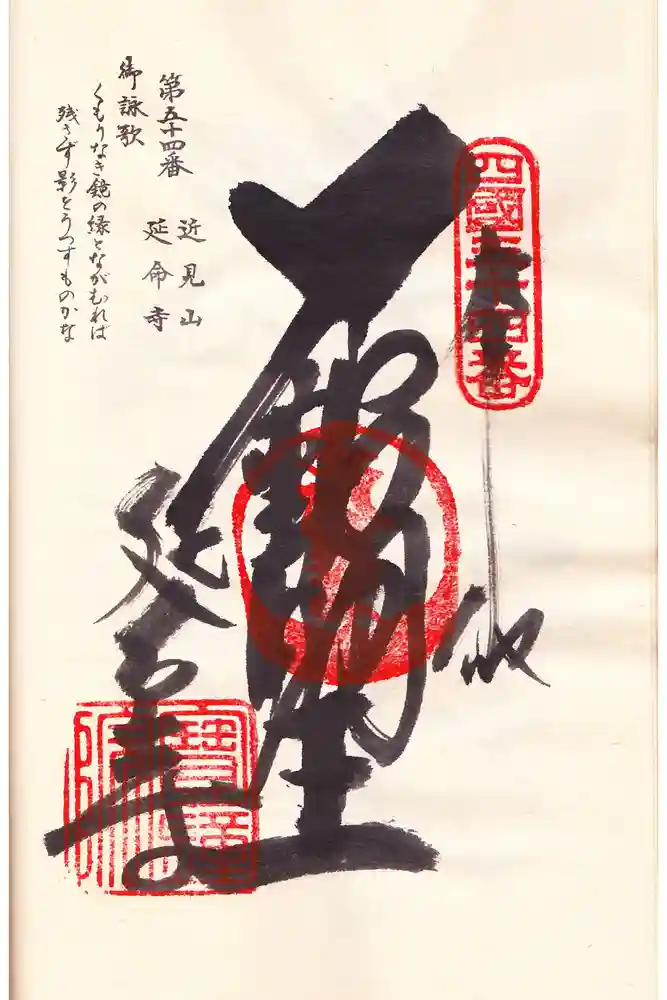 四國五十四番
奉納
延命寺
第五十四番
近見山
延命寺
御詠歌
くもりなき鏡の縁とながむれば
残さず影をうつすものかな